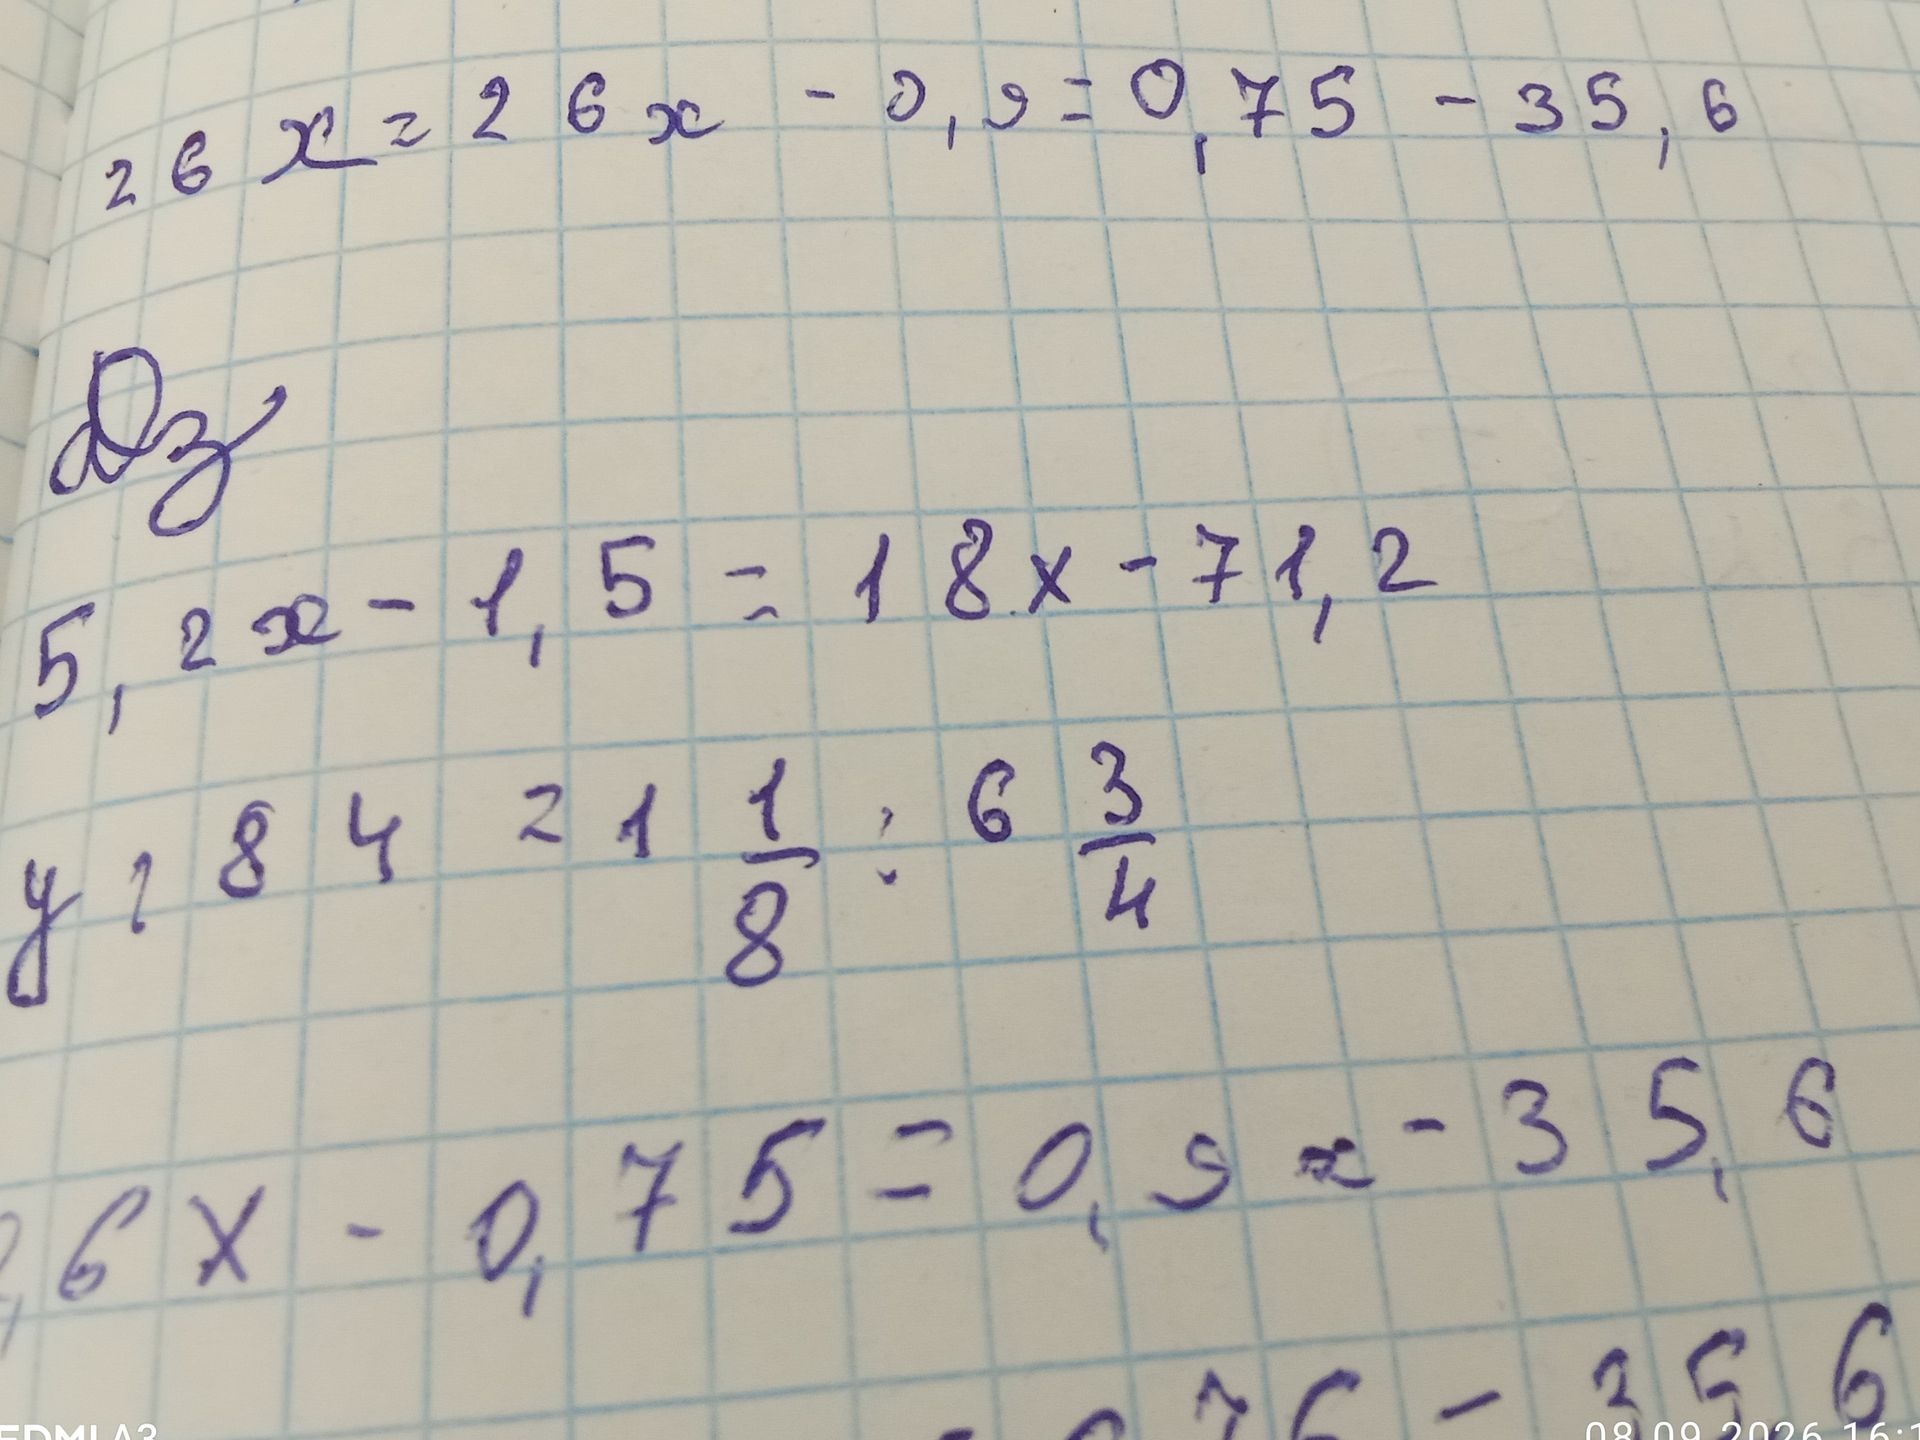 26x=26x - 0,9=0,75 - 35,6
Дз
5,2x - 1,5 = 18x - 71,2
y : 84 = 1 1/8 : 6 3/4
2,6x - 0,75 = 0,9x - 35,6
- 35 6
08.09.2026 16:1